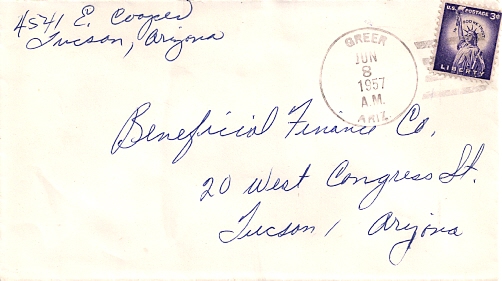 4541 E. Cooper
Tucson, Arizona
GREER
JUN
8
1957
A.M.
ARIZ.
U.S. POSTAGE 3¢
IN GOD WE TRUST
LIBERTY
Beneficial Finance Co.
20 West Congress St.
Tucson, Arizona